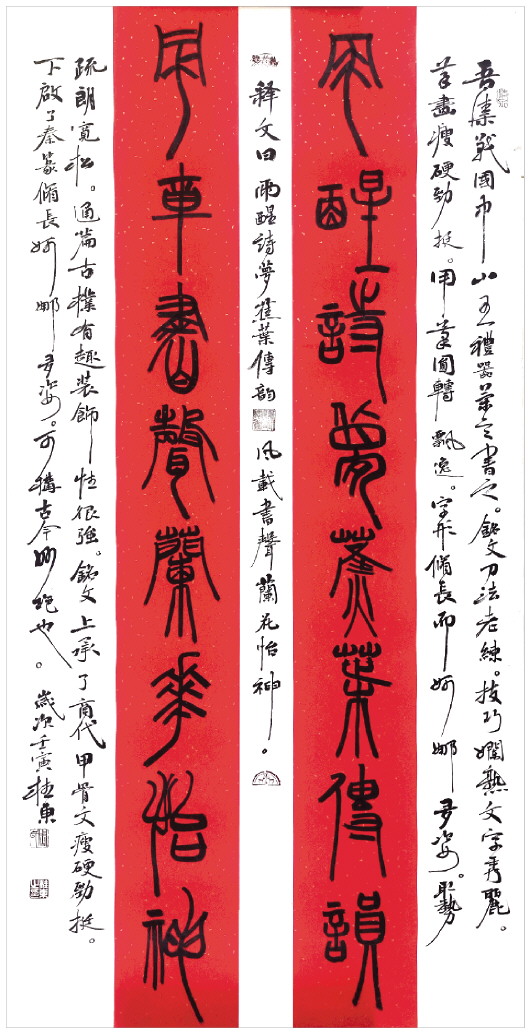 吾集戰國中山王禮器筆意書之。銘文刀法老練。技巧嫻熟文字秀麗。
筆畫瘦硬勁挺。用筆圓轉飄逸。字形脩長而婀娜多姿。取勢
雨醒詩夢蕉葉傳韻
釋文曰雨醒詩夢蕉葉傳韵風載書聲蘭花怡神。
風載書聲蘭華怡神
疏朗寬松。通篇古樸有趣裝飾性很強。銘文上承了商代甲骨文瘦硬勁挺。
下啟了秦篆脩長婀娜多姿。可稱古今妙絕也。歲次壬寅桂東